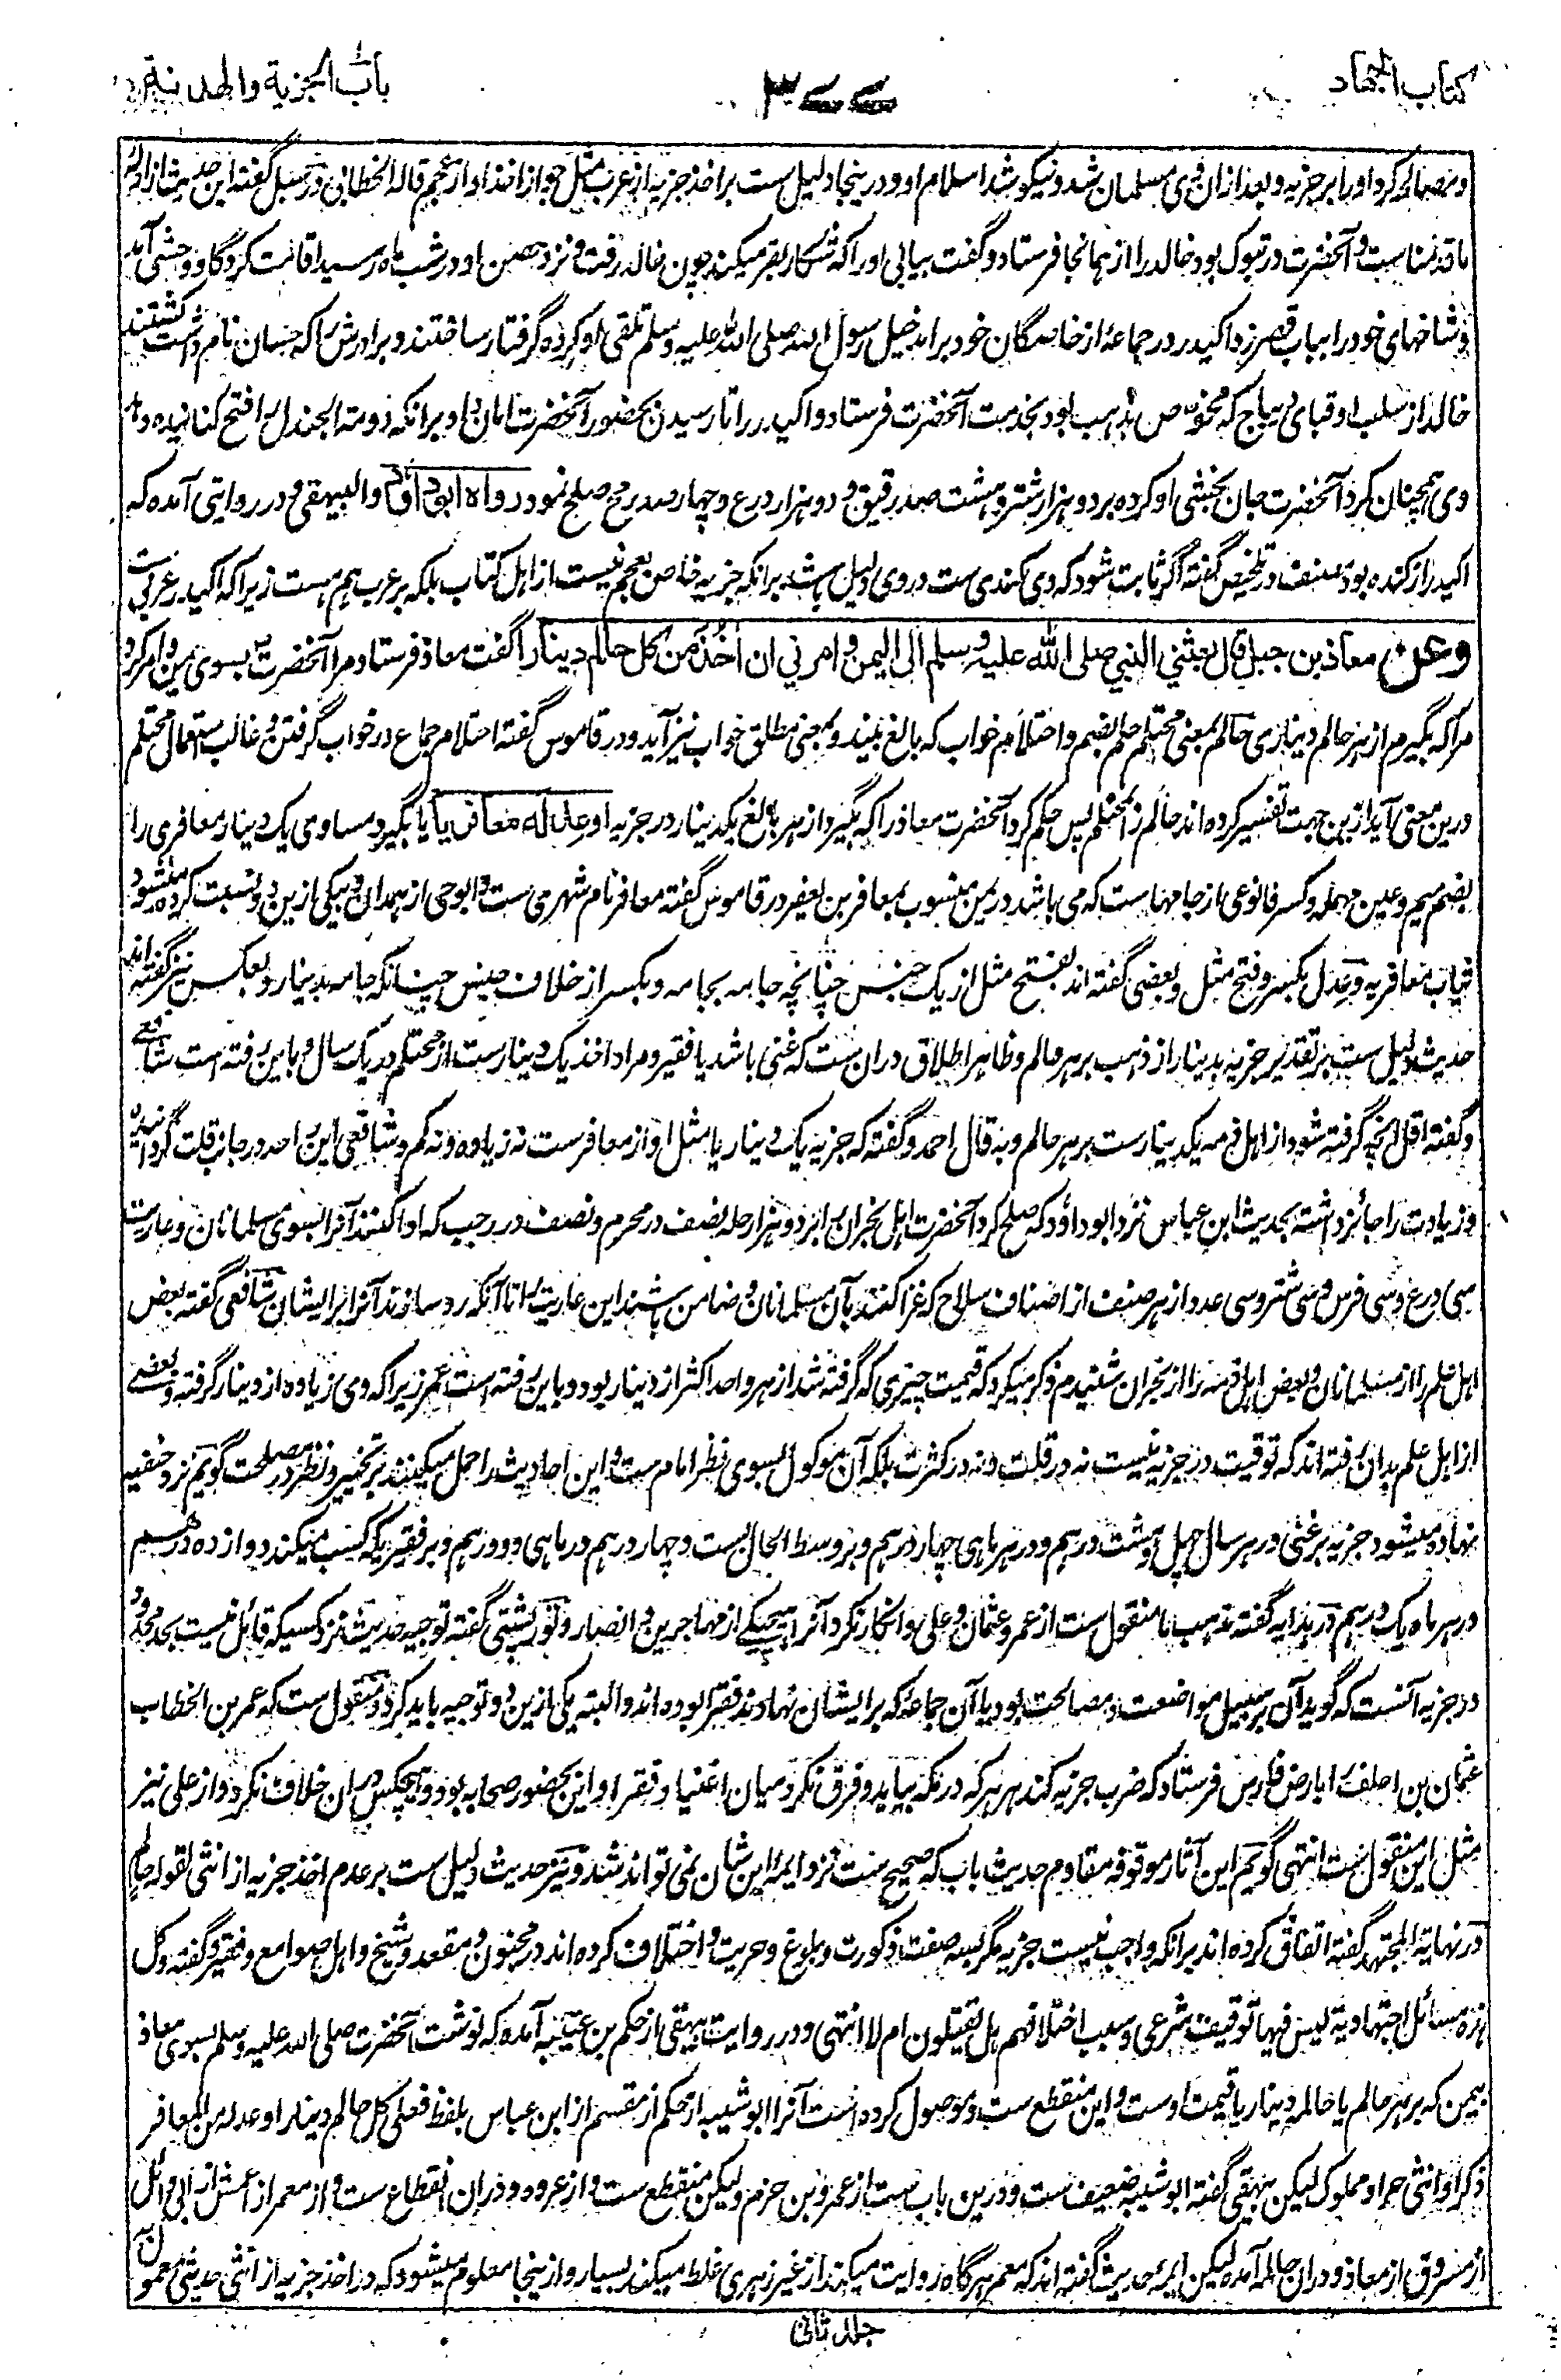 کتاب الجهاد
۳۷۷
باب الجزیة والهدنة
و مصالحه کرد او را بر جزیه و بعد ازان وی مسلمان شد و نیکو شد اسلام او و درینجا دلیل ست بر اخذ جزیه از عرب مثل جواز اخذ او از عجم قاله الخطابی و در سبل گفته این حدیث از ادله
ما قدمناست و آنحضرت در تبوک بود خالد را از همانجا فرستاد و گفت بیابی او را که شکار بقر میکند چون خالد رفت و نزد حصن او در شب ماه رسید اقامت کرد گاو وحشی آمد
و شاخهای خود را بباب قصر زد اکیدر در جماعه از خاصگان خود برآمد خیل رسول الله صلی الله علیه وسلم تلقی او کرده گرفتار ساختند و برادرش را که حسان نام داشت کشتند
خالد از سلب او قبای دیباج که مخوص بذهب بود بخدمت آنحضرت فرستاد و اکیدر را تا رسیدن بحضور آنحضرت امان داد برانکه دومة الجندل را فتح کنانیده دهد
وی همچنان کرد آنحضرت جان بخشی او کرده بر دو هزار شتر و هشت صد رقیق و دو هزار درع و چهار صد رمح صلح نمود رواه ابو داود والبیهقی و در روایتی آمده که
اکیدر از کنده بود مصنف در تلخیص گفته اگر ثابت شود که وی کندی ست در وی دلیل باشد برانکه جزیه خاص بعجم نیست از اهل کتاب بلکه بر عرب هم هست زیرا که اکیدر عربی ست
وعن معاذ بن جبل قال بعثني النبي صلى الله عليه وسلم الى اليمن وامرني ان أخذ من كل حالم دينارا گفت معاذ فرستاد مرا آنحضرت بسوی یمن و امر کرد
مرا که بگیرم از هر حالم دیناری حالم بمعنی محتلم حلم بالضم و احتلام خواب که بالغ بیند و بمعنی مطلق خواب نیز آید و در قاموس گفته احتلام جماع در خواب گرفتن و غالب استعمال محتلم
درین معنی آید ازین جهت تفسیر کرده اند حالم را بمحتلم پس حکم کرد آنحضرت معاذ را که بگیرد از هر بالغ یک دینار در جزیه او عدله معافريا یا بگیرد مساوی یک دینار معافری را
بضم میم و عین مهمله و کسر فا نوعی از جامهاست که می باشد در یمن منسوب بمعافر بن یعفر در قاموس گفته معافر نام شهری ست و ابو حی از همدان و بیکی ازین دو نسبت کرده میشود
ثیاب معافریه و عدل بکسر و فتح مثل و بعضی گفته اند بفتح مثل از یک جنس چنانچه جامه بجامه و بکسر از خلاف جنس چنانکه جامه بدینار و بعکس نیز گفته اند
حدیث دلیل ست بر تقدیر جزیه بدینار از ذهب بر هر حالم و ظاهر اطلاق دران ست که غنی باشد یا فقیر و مراد اخذ یک دینارست از محتلم در یک سال و باین رفته است شافعی
و گفته اقل آنچه گرفته شود از اهل ذمه یک دینارست بر هر حالم و به قال احمد و گفته که جزیه یک دینار یا مثل او از معافرست نه زیاده و نه کم و شافعی این را حد در جانب قلت گردانیده
و زیادت را جائز داشته بحدیث ابن عباس نزد ابو داود که صلح کرد آنحضرت اهل نجران را بر دو هزار حله نصف در محرم و نصف در رجب که ادا کنند آنرا بسوی مسلمانان و عاریت
سی درع و سی فرس و سی شتر و سی عدد از هر صنف از اصناف سلاح که غزا کنند بآن مسلمانان و ضامن باشند این عاریت را تا آنکه رد سازند آنرا بر ایشان شافعی گفته بعض
اهل علم را از مسلمانان و بعض اهل ذمه را از نجران شنیدم ذکر میکرد که قیمت چیزی که گرفته شد از هر واحد اکثر از دینار بود و باین رفته است عمر زیرا که وی زیاده از دینار گرفته و بعضے
از اهل علم بدان رفته اند که توقیت در جزیه نیست نه در قلت و نه در کثرت بلکه آن موکول بسوی نظر امام ست و این احادیث را حمل میکنند بر تخییر و نظر در مصلحت گویم نزد حنفیه
نهاده میشود جزیه بر غنی در هر سال چهل و هشت درهم و در هر ماهی چهار درهم و بر وسط الحال بست و چهار درهم در ماهی دو درهم و بر فقیریکه کسب میکند دوازده درهم
در هر ماه یک درهم در هدایه گفته مذهب ما منقول ست از عمر و عثمان و علی و انکار نکرد آنرا هیچیکے از مهاجرین و انصار و تورپشتی گفته توجیه حدیث نزد کسیکه قائل نیست بحد محدود
در جزیه آنست که گوید آن بر سبیل مواضعت و مصالحت بود یا آن جماعه که بر ایشان نهادند فقرا بوده اند و البته یکی ازین دو توجیه باید کرد و منقول ست که عمر بن الخطاب
عثمان بن احنف را بارض فارس فرستاد که ضرب جزیه کند هر هر که در نکه بیاید و فرق نکرد میان اغنیا و فقرا و این بحضور صحابه بود و هیچکس دران خلاف نکرد و از علی نیز
مثل این منقول ست انتهی گویم این آثار موقوفه مقاوم حدیث باب که صحیح ست نزد ایمه این شان نمی تواند شد و نیز حدیث دلیل ست بر عدم اخذ جزیه از انثی لقوله حالم
در نهایة المجتهد گفته اتفاق کرده اند برانکه واجب نیست جزیه مگر بسه صفت ذکورت و بلوغ و حریت و اختلاف کرده اند در مجنون و مقعد و شیخ و اهل صوامع و فقیر و گفته و کل
هذه مسائل اجتهادیة لیس فیها توقیف شرعی و سبب اختلافهم هل یقتلون ام لا انتهی و در روایت بیهقی از حکم بن عتیبه آمده که نوشت آنحضرت صلی الله علیه وسلم بسوی معاذ
بیمن که بر هر حالم یا حالمه دینار یا قیمت اوست و این منقطع ست و موصول کرده است آنرا ابو شیبه از حکم از مقسم از ابن عباس بلفظ فعلی کل حالم دینار او عدله من المعافر
ذکر او انثی حر او مملوک لیکن بیهقی گفته ابو شیبه ضعیف ست و درین باب ست از عمرو بن حزم ولیکن منقطع ست و از عروه و دران انقطاع ست و از معمر از اعمش از ابی وائل
از مسروق از معاذ و دران حالمه آمده لیکن ایمه حدیث گفته اند که معمر هرگاه روایت میکند از غیر زهری غلط میکند بسیار و ازینجا معلوم میشود که در اخذ جزیه از انثی حدیثی معمول به
جلد ثانی